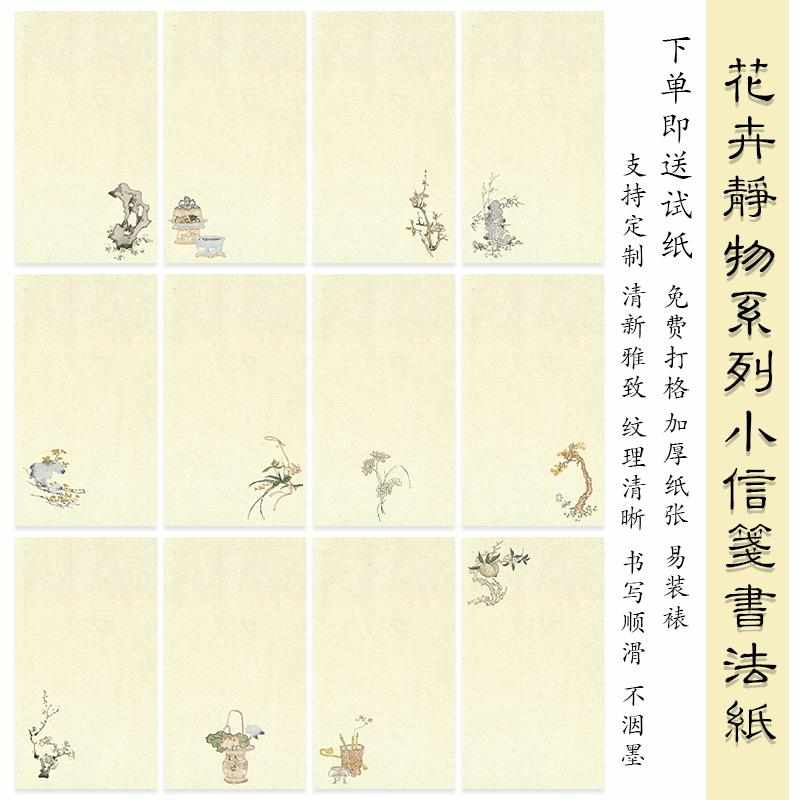 花卉靜物系列小信箋書法紙
下单即送试纸 免费打格 加厚纸张 易装裱
支持定制 清新雅致 纹理清晰 书写顺滑 不洇墨